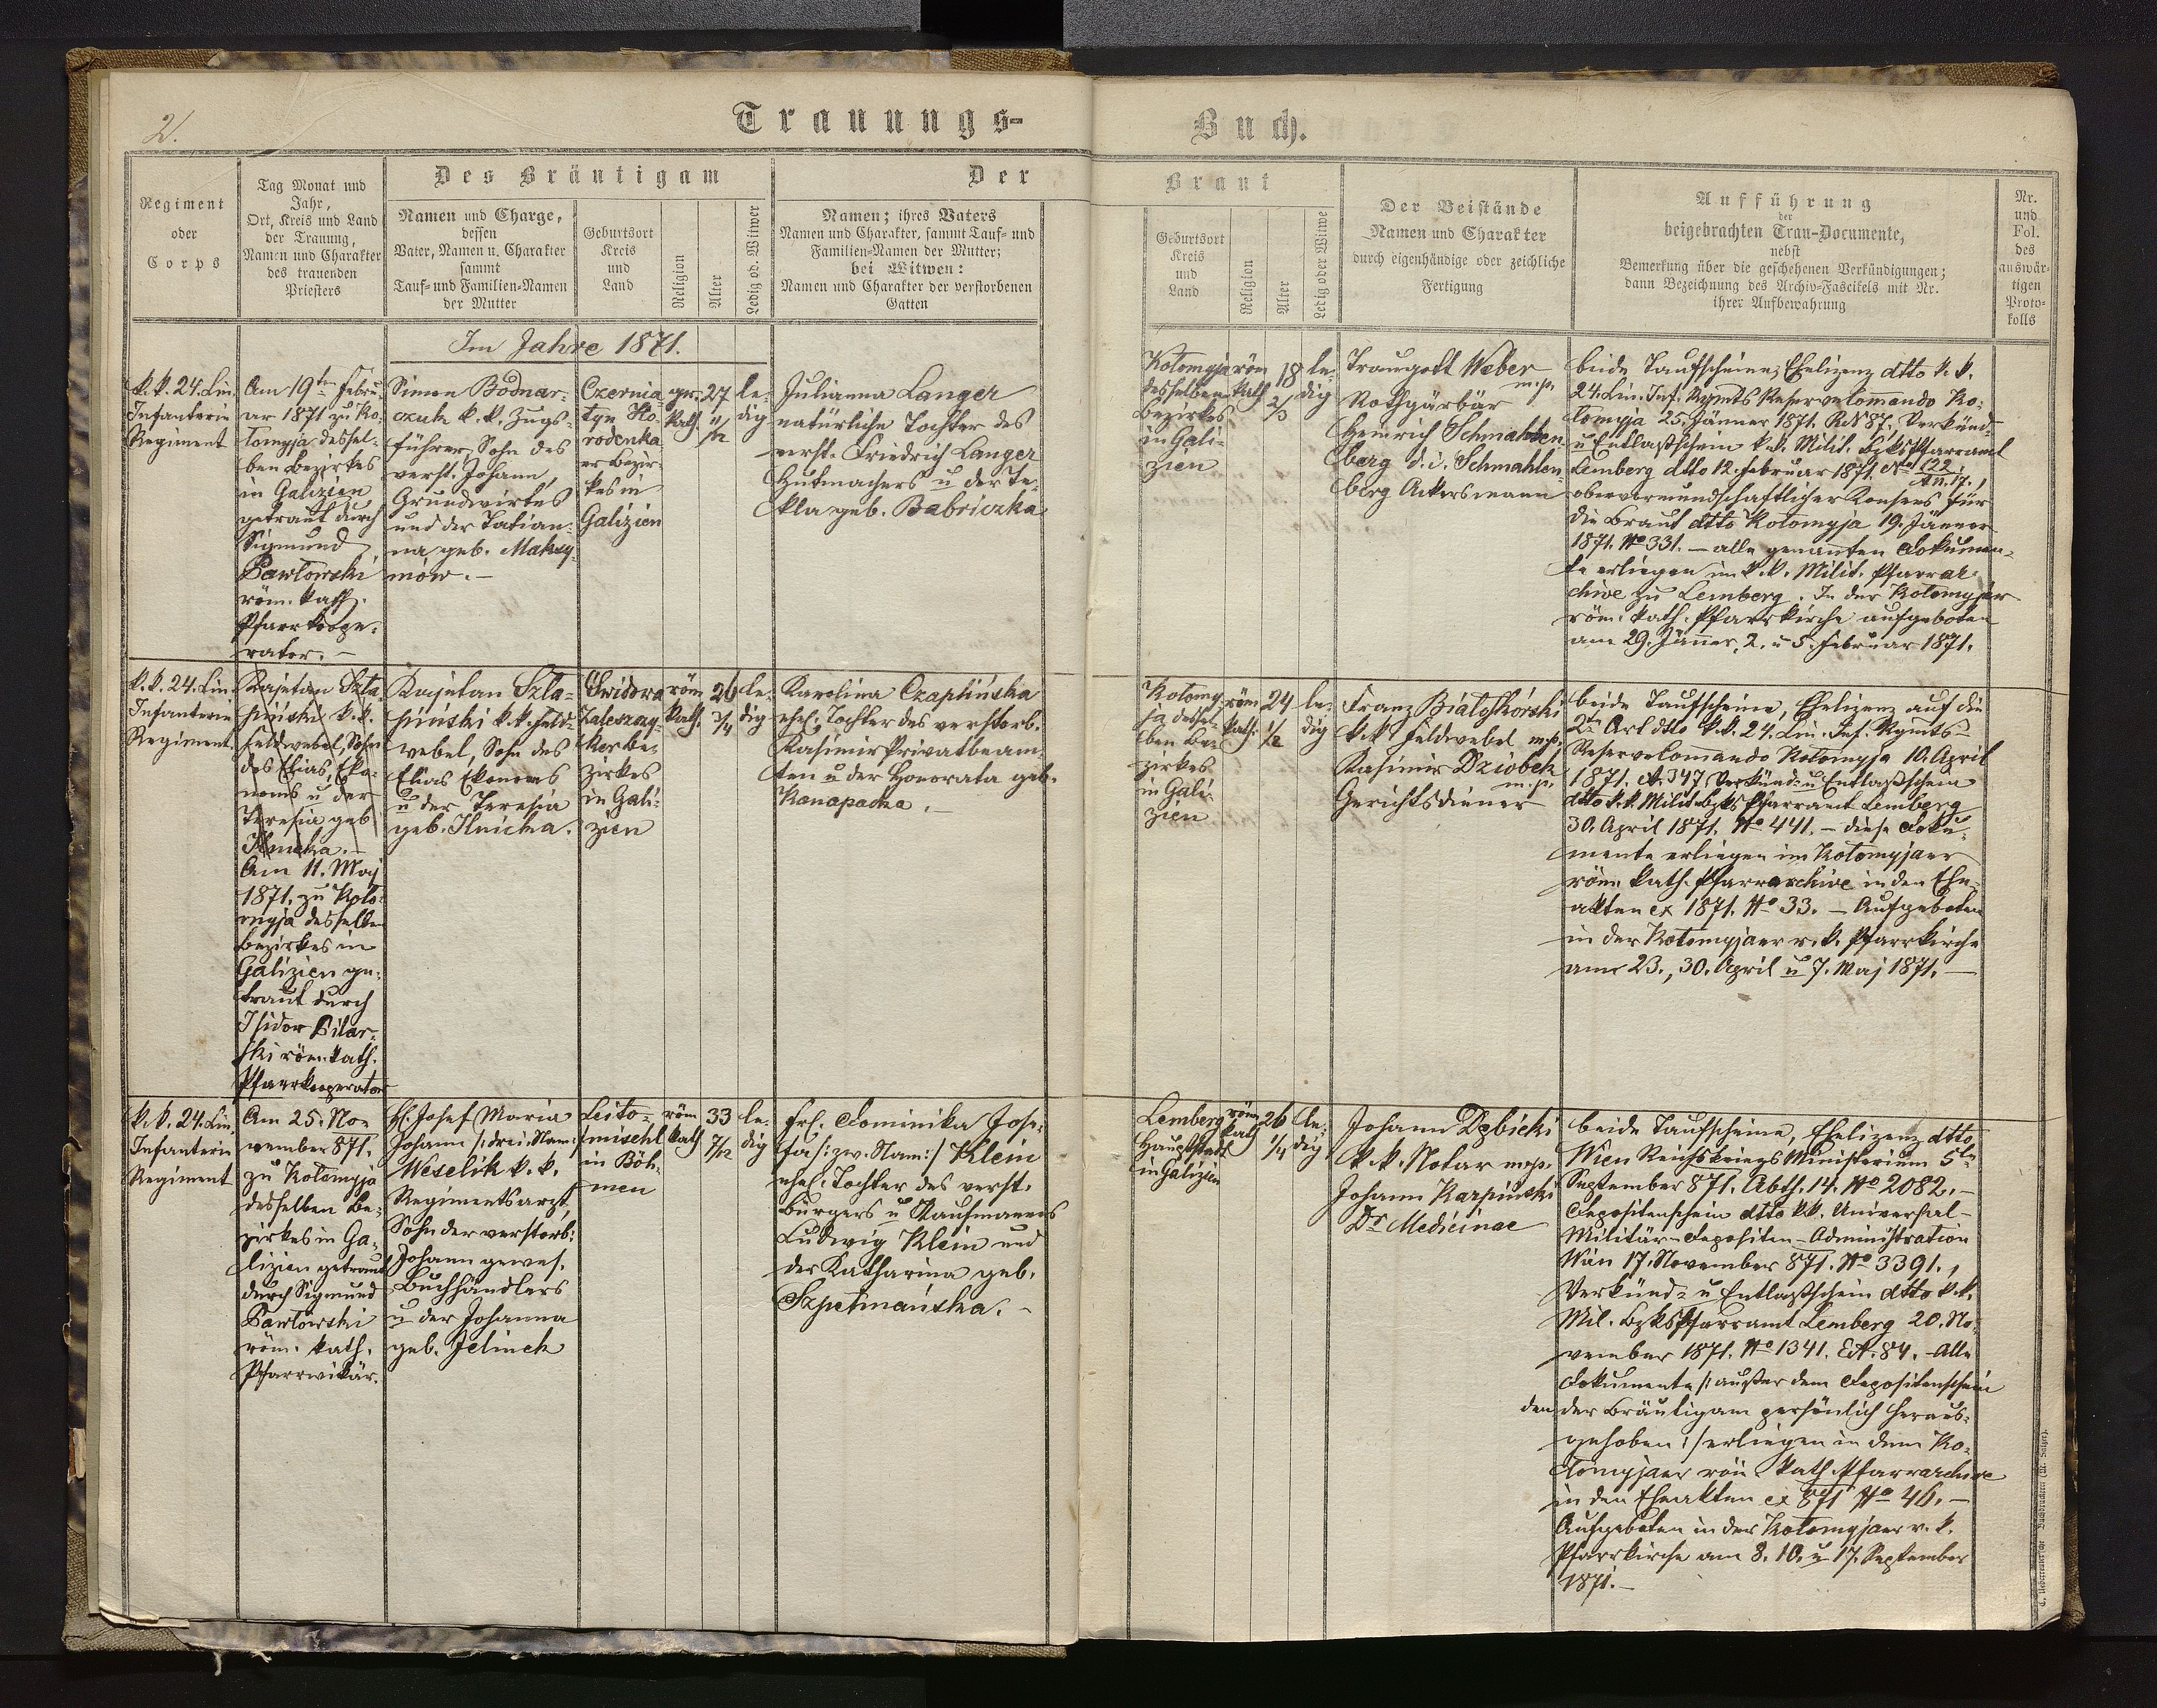 2.
Trauungs-
Buch.
Regiment
oder
Corps
Tag Monat und
Jahr,
Ort, Kreis und Land
der Trauung,
Namen und Charakter
des trauenden
Priesters
Des Bräutigam
Namen und Charge,
dessen
Vater, Namen u. Charakter
sammt
Tauf- und Familien-Namen
der Mutter
Geburtsort
Kreis
und
Land
Religion
Alter
Ledig od. Witwer
Der
Namen; ihres Vaters
Namen und Charakter, sammt Tauf- und
Familien-Namen der Mutter;
bei Witwen:
Namen und Charakter der verstorbenen
Gatten
Braut
Geburtsort
Kreis
und
Land
Religion
Alter
Ledig oder Witwe
Der Beistände
Namen und Charakter
durch eigenhändige oder zeichliche
Fertigung
Aufführung
der
beigebrachten Trau-Documente,
nebst
Bemerkung über die geschehenen Verkündigungen;
dann Bezeichnung des Archiv-Fascikels mit Nr.
ihrer Aufbewahrung
Nr.
und
Fol.
des
auswär-
tigen
Proto-
kolls
Im Jahre 1871.
k. k. 24. Lin.
Infanterie
Regiment
Am 19ten Febru-
ar 1871 zu Ko-
lomyja dessel-
ben Bezirkes
in Galizien
getraut durch
Sigmund
Pawłowski
röm. kath.
Pfarrkoope-
rator. –
Simon Bodnar-
czuk k. k. Zugs-
führer, Sohn des
verst. Johann,
Grundwirtes
und der Tatian-
na geb. Maksy-
mów. –
Czernia-
tyn Ho-
rodenka-
er Bezir-
kes in
Galizien
gr.
kath.
27
11/12
le-
dig
Julianna Langer
natürliche Tochter des
verst. Friedrich Langer
Hutmachers u der Te-
kla geb. Babriczka
Kolomyja
desselben
Bezirkes
in Gali-
zien
röm
kath
18
2/3
le-
dig
Traugott Weber
m.p.
Rothgärbär
Heinrich Schmahten-
berg d. i. Schmahlen-
berg Ackersmann
beide Taufscheine, Ehelizenz dtto k. k.
24. Lin. Inf. Rgmts Reservekomando Ko-
lomyja 25. Jänner 1871. RN 87, Verkünd-
u Entlaßschein k. k. Milit. Bzks Pfarramt
Lemberg dtto 12. Februar 1871. No 122
An. 17.,
obervormundschaftlicher Konsens für
die Braut dtto Kolomyja 19. Jänner
1871. No 331. – alle genannten Dokumen-
te erliegen im k. k. Milit. Pfarrar-
chive zu Lemberg. In der Kolomyjaer
röm. kath. Pfarrkirche aufgeboten
am 29. Jänner, 2. u 5. Februar 1871.
k. k. 24. Lin.
Infanterie
Regiment.
Kajetan Szla-
hiński k. k.
Feldwebel, Sohn
des Elias, Eko-
noms u der
Teresia geb
Ilnicka. –
Am 11. Maj
1871. zu Kolo-
myja desselben
Bezirkes in
Galizien ge-
traut durch
Isidor Bilar-
ski röm. kath.
Pfarrkooperator
Kajetan Szla-
hiński k. k. Feld-
webel, Sohn des
Elias Ekonoms
u der Teresia
geb. Ilnicka.
Swidova
Zaleszczy-
ker Be-
zirkes
in Gali-
zien
röm
kath.
26
3/4
le-
dig
Karolina Czaplińska
ehel. Tochter des verstorb.
Kasimir Privatbeam-
ten u der Honorata geb.
Kanapacka. –
Kolomy-
ja dessel-
ben Be-
zirkes
in Gali-
zien
röm
kath.
24
1/2
le-
dig
Franz Białoskórski
k. k. Feldwebel m.p.
Kasimir Dziobek
m.p.
Gerichtsdiener
beide Taufscheine, Ehelizenz auf die
2te Art dtto k. k. 24. Lin. Inf. Rgmts-
Reservekomando Kolomyja 10. April
1871. A. 347, Verkünd- u Entlaßschein
dtto k. k. Milit. Bzks Pfarramt Lemberg
30. April 1871. No 441. – diese Doku-
mente erliegen im Kolomyjaer
röm. kath. Pfarrarchive in den Ehe-
akten ex 1871. No 33. – Aufgeboten
in der Kolomyjaer r. k. Pfarrkirche
am 23., 30. April u 7. Maj 1871. –
k. k. 24. Lin.
Infanterie
Regiment
Am 25. No-
vember 871.
zu Kolomyja
desselben Be-
zirkes in Ga-
lizien getraut
durch Sigmund
Pawłowski
röm. kath.
Pfarrvikär.
H. Josef Maria
Johann /: drei. Nam :/
Weselik k. k.
Regimentsarzt,
Sohn der verstorb:
Johann gewes.
Buchhändlers
u der Johanna
geb. Jelinek
Leito-
mischl
in Böh-
men
röm
kath
33
7/12
le-
dig
Frl. Dominika Jose-
fa /: zw. Nam :/ Klein
ehel. Tochter des verst.
Bürgers u Kaufmanns
Ludwig Klein und
der Katharina geb.
Szpetmańska. –
Lemberg
Hauptstadt
in Galizien
röm
kath
26
1/4
le-
dig
Johann Dębicki
k. k. Notar m.p.
Johann Karpiński
Dr Medicinae
beide Taufscheine, Ehelizenz dtto
Wien Reichskriegs Ministerium 5ten
September 871. Abth. 14. No 2082. –
Depositenschein dtto k.k. Universal-
Militär-Depositen-Administration
Wien 17. November 871. No 3391.,
Verkünd- u Entlaßschein dtto k. k.
Mil. Bzks Pfarramt Lemberg 20. No-
vember 1871. No 1341. EA. 84. – Alle
Dokumente /: außer dem Depositenschein
den der Bräutigam persönlich heraus-
gehoben :/ erliegen in dem Ko-
lomyjaer röm. kath. Pfarrarchive
in den Eheakten ex 871 No 46. –
Aufgeboten in der Kolomyjaer r. k.
Pfarrkirche am 8. 10. u 17. September
1871. –